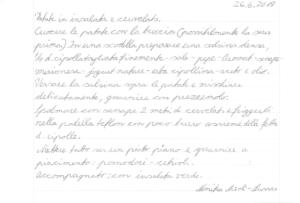 26.6.2018
Patate in insalata e cervelats.
Cuocere le patate con la buccia (possibilmente la sera
prima). In una scodella preparare una salsina densa,
½ di cipolla tagliata finemente - sale - pepe - - senape
maionese - jogurt nature - erba cipollina - aceto e olio.
Versare la salsina sopra le patate e mischiare
delicatamente, guarnire con prezzemolo.
con senape 2 metà di cervelati e friggerli
nella padella teflon con poco burro assieme alle fette
di cipolle.
Mettere tutto su un piatto piano e guarnire a
piacimento: pomodori - cetrioli.
Accompagnato: con insalata verde.
Monika